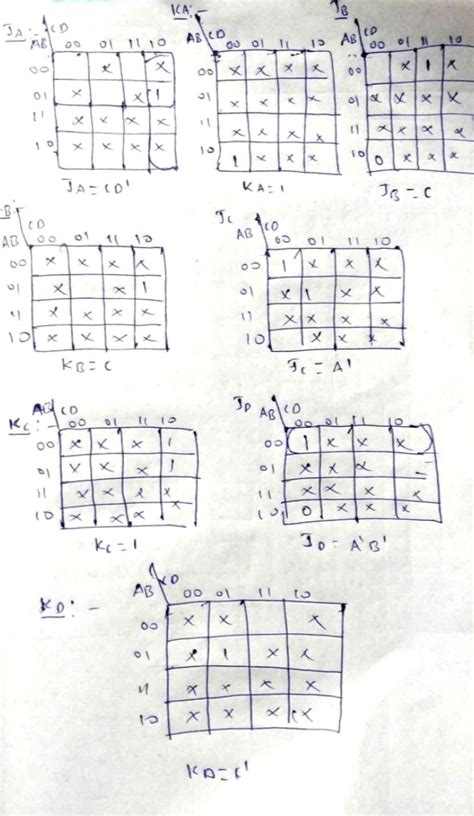 JA:-
AB CD 00 01 11 10
00 x x
01 x x 1
11 x x x x
10 x x x x
JA = CD'
KA:-
AB CD 00 01 11 10
00 x x x x
01 x x x x
11 x x x x
10 1 x x x
KA = 1
JB
AB CD 00 01 11 10
00 x 1 x
01 x x x x
11 x x x x
10 0 x x x
JB = C
B:-
AB CD 00 01 11 10
00 x x x x
01 x x 1
11 x x x x
10 x x x x
KB = C
JC
AB CD 00 01 11 10
00 1 x x x
01 x 1 x x
11 x x x x
10 x x x
JC = A'
KC:-
AB CD 00 01 11 10
00 x x x 1
01 x x x 1
11 x x x x
10 x x x x
KC = 1
JD
AB CD 00 01 11 10
00 1 x x x
01 x x x
11 x x x x
10 0 x x x
JD = A'B'
KD:-
AB CD 00 01 11 10
00 x x x
01 x 1 x x
11 x x x x
10 x x x x
KD = C'